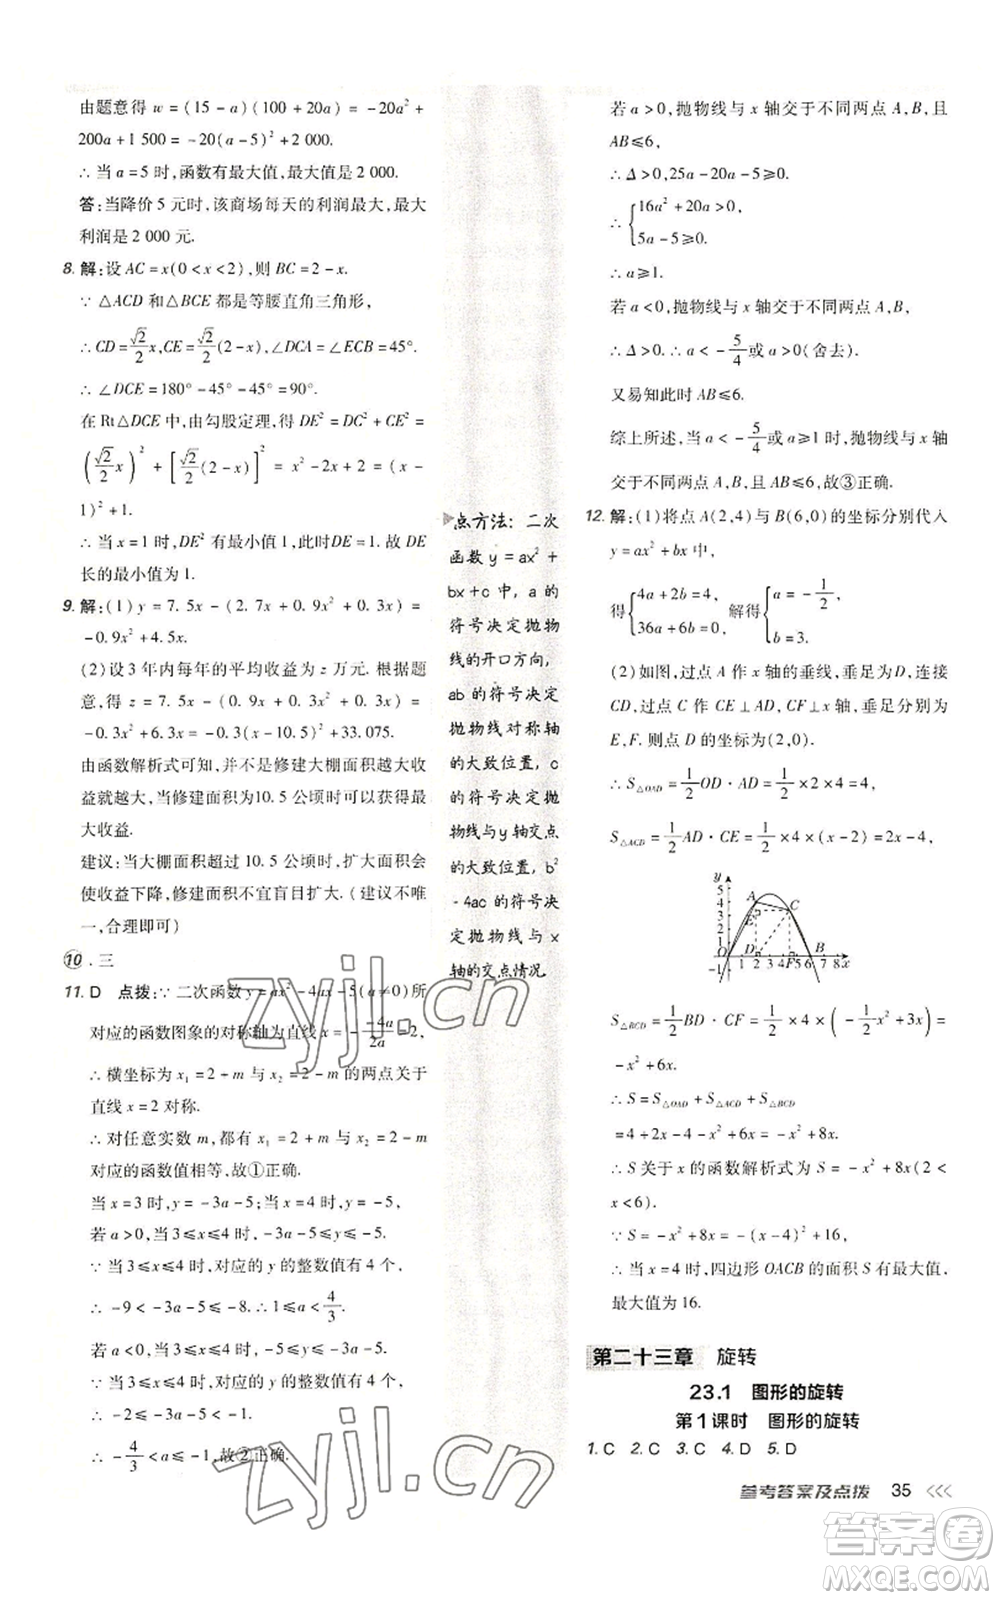 由题意得 w = (15 - a)(100 + 20a) = -20a² +
200a + 1 500 = -20(a - 5)² + 2 000.
∴ 当 a = 5 时,函数有最大值,最大值是 2 000.
答:当降价 5 元时,该商场每天的利润最大,最大
利润是 2 000 元.
8. 解:设 AC = x(0 < x < 2),则 BC = 2 - x.
∵ △ACD 和 △BCE 都是等腰直角三角形,
∴ CD = √2/2 x, CE = √2/2 (2 - x), ∠DCA = ∠ECB = 45°.
∴ ∠DCE = 180° - 45° - 45° = 90°.
在 Rt△DCE 中,由勾股定理,得 DE² = DC² + CE² =
(√2/2 x)² + [√2/2 (2 - x)]² = x² - 2x + 2 = (x -
1)² + 1.
∴ 当 x = 1 时,DE² 有最小值 1,此时DE = 1.故 DE
长的最小值为 1.
9. 解:(1) y = 7.5x - (2.7x + 0.9x² + 0.3x) =
-0.9x² + 4.5x.
(2)设 3 年内每年的平均收益为 z 万元.根据题
意,得 z = 7.5x - (0.9x + 0.3x² + 0.3x) =
-0.3x² + 6.3x = -0.3(x - 10.5)² + 33.075.
由函数解析式可知,并不是修建大棚面积越大收
益就越大,当修建面积为10.5公顷时可以获得最
大收益.
建议:当大棚面积超过 10.5 公顷时,扩大面积会
使收益下降,修建面积不宜盲目扩大.(建议不唯
一,合理即可)
10. 三
11. D 点拨:∵ 二次函数 y = ax² - 4ax - 5(a ≠ 0)所
对应的函数图象的对称轴为直线 x = - -4a/2a = 2,
∴ 横坐标为 x₁ = 2 + m 与 x₂ = 2 - m 的两点关于
直线 x = 2 对称.
∴ 对任意实数 m,都有 x₁ = 2 + m 与 x₂ = 2 - m
对应的函数值相等,故①正确.
当 x = 3 时,y = -3a - 5;当 x = 4 时,y = -5,
若 a > 0,当 3 ≤ x ≤ 4 时, -3a - 5 ≤ y ≤ -5.
∵ 当 3 ≤ x ≤ 4 时,对应的 y 的整数值有 4 个,
∴ -9 < -3a - 5 ≤ -8. ∴ 1 ≤ a < 4/3.
若 a < 0,当 3 ≤ x ≤ 4 时, -5 ≤ y ≤ -3a - 5.
∵ 当 3 ≤ x ≤ 4 时,对应的 y 的整数值有 4 个,
∴ -2 ≤ -3a - 5 < -1.
∴ -4/3 < a ≤ -1,故②正确.
点方法: 二次
函数 y = ax² +
bx + c 中, a 的
符号决定抛物
线的开口方向,
ab 的符号决定
抛物线对称轴
的大致位置, c
的符号决定抛
物线与y 轴交点
的大致位置, b²
- 4ac 的符号决
定抛物线与 x
轴的交点情况.
若 a > 0,抛物线与 x 轴交于不同两点 A,B,且
AB ≤ 6,
∴ Δ > 0, 25a - 20a - 5 ≥ 0.
∴ {16a² + 20a > 0,
5a - 5 ≥ 0.
∴ a ≥ 1.
若 a < 0,抛物线与 x 轴交于不同两点 A,B,
∴ Δ > 0. ∴ a < - 5/4 或 a > 0(舍去).
又易知此时 AB ≤ 6.
综上所述,当 a < - 5/4 或 a ≥ 1 时,抛物线与 x 轴
交于不同两点 A,B,且 AB ≤ 6,故③正确.
12. 解:(1)将点 A(2,4)与 B(6,0)的坐标分别代入
y = ax² + bx 中,
得 {4a + 2b = 4, 36a + 6b = 0, 解得 {a = - 1/2, b = 3.
(2)如图,过点 A 作 x 轴的垂线,垂足为D,连接
CD,过点 C 作 CE⊥AD,CF⊥x 轴,垂足分别为
E,F.则点 D 的坐标为(2,0).
∴ S△OAD = 1/2 OD · AD = 1/2 × 2 × 4 = 4,
S△ACD = 1/2 AD · CE = 1/2 × 4 × (x - 2) = 2x - 4,
y
5
4
3
2
1
-1
A
E
C
O
D
F
B
1 2 3 4 5 6 7 8 x
S△BCD = 1/2 BD · CF = 1/2 × 4 × (- 1/2 x² + 3x) =
-x² + 6x.
∴ S = S△OAD + S△ACD + S△BCD
= 4 + 2x - 4 - x² + 6x = -x² + 8x.
∴ S 关于 x 的函数解析式为 S = -x² + 8x(2 <
x < 6).
∵ S = -x² + 8x = -(x - 4)² + 16,
∴ 当 x = 4 时,四边形 OACB 的面积 S 有最大值,
最大值为 16.
第二十三章 旋转
23.1 图形的旋转
第 1 课时 图形的旋转
1. C 2. C 3. C 4. D 5. D
参考答案及点拨 35
zyjl.cn
zyjl.cn
答案卷
MXQE.COM